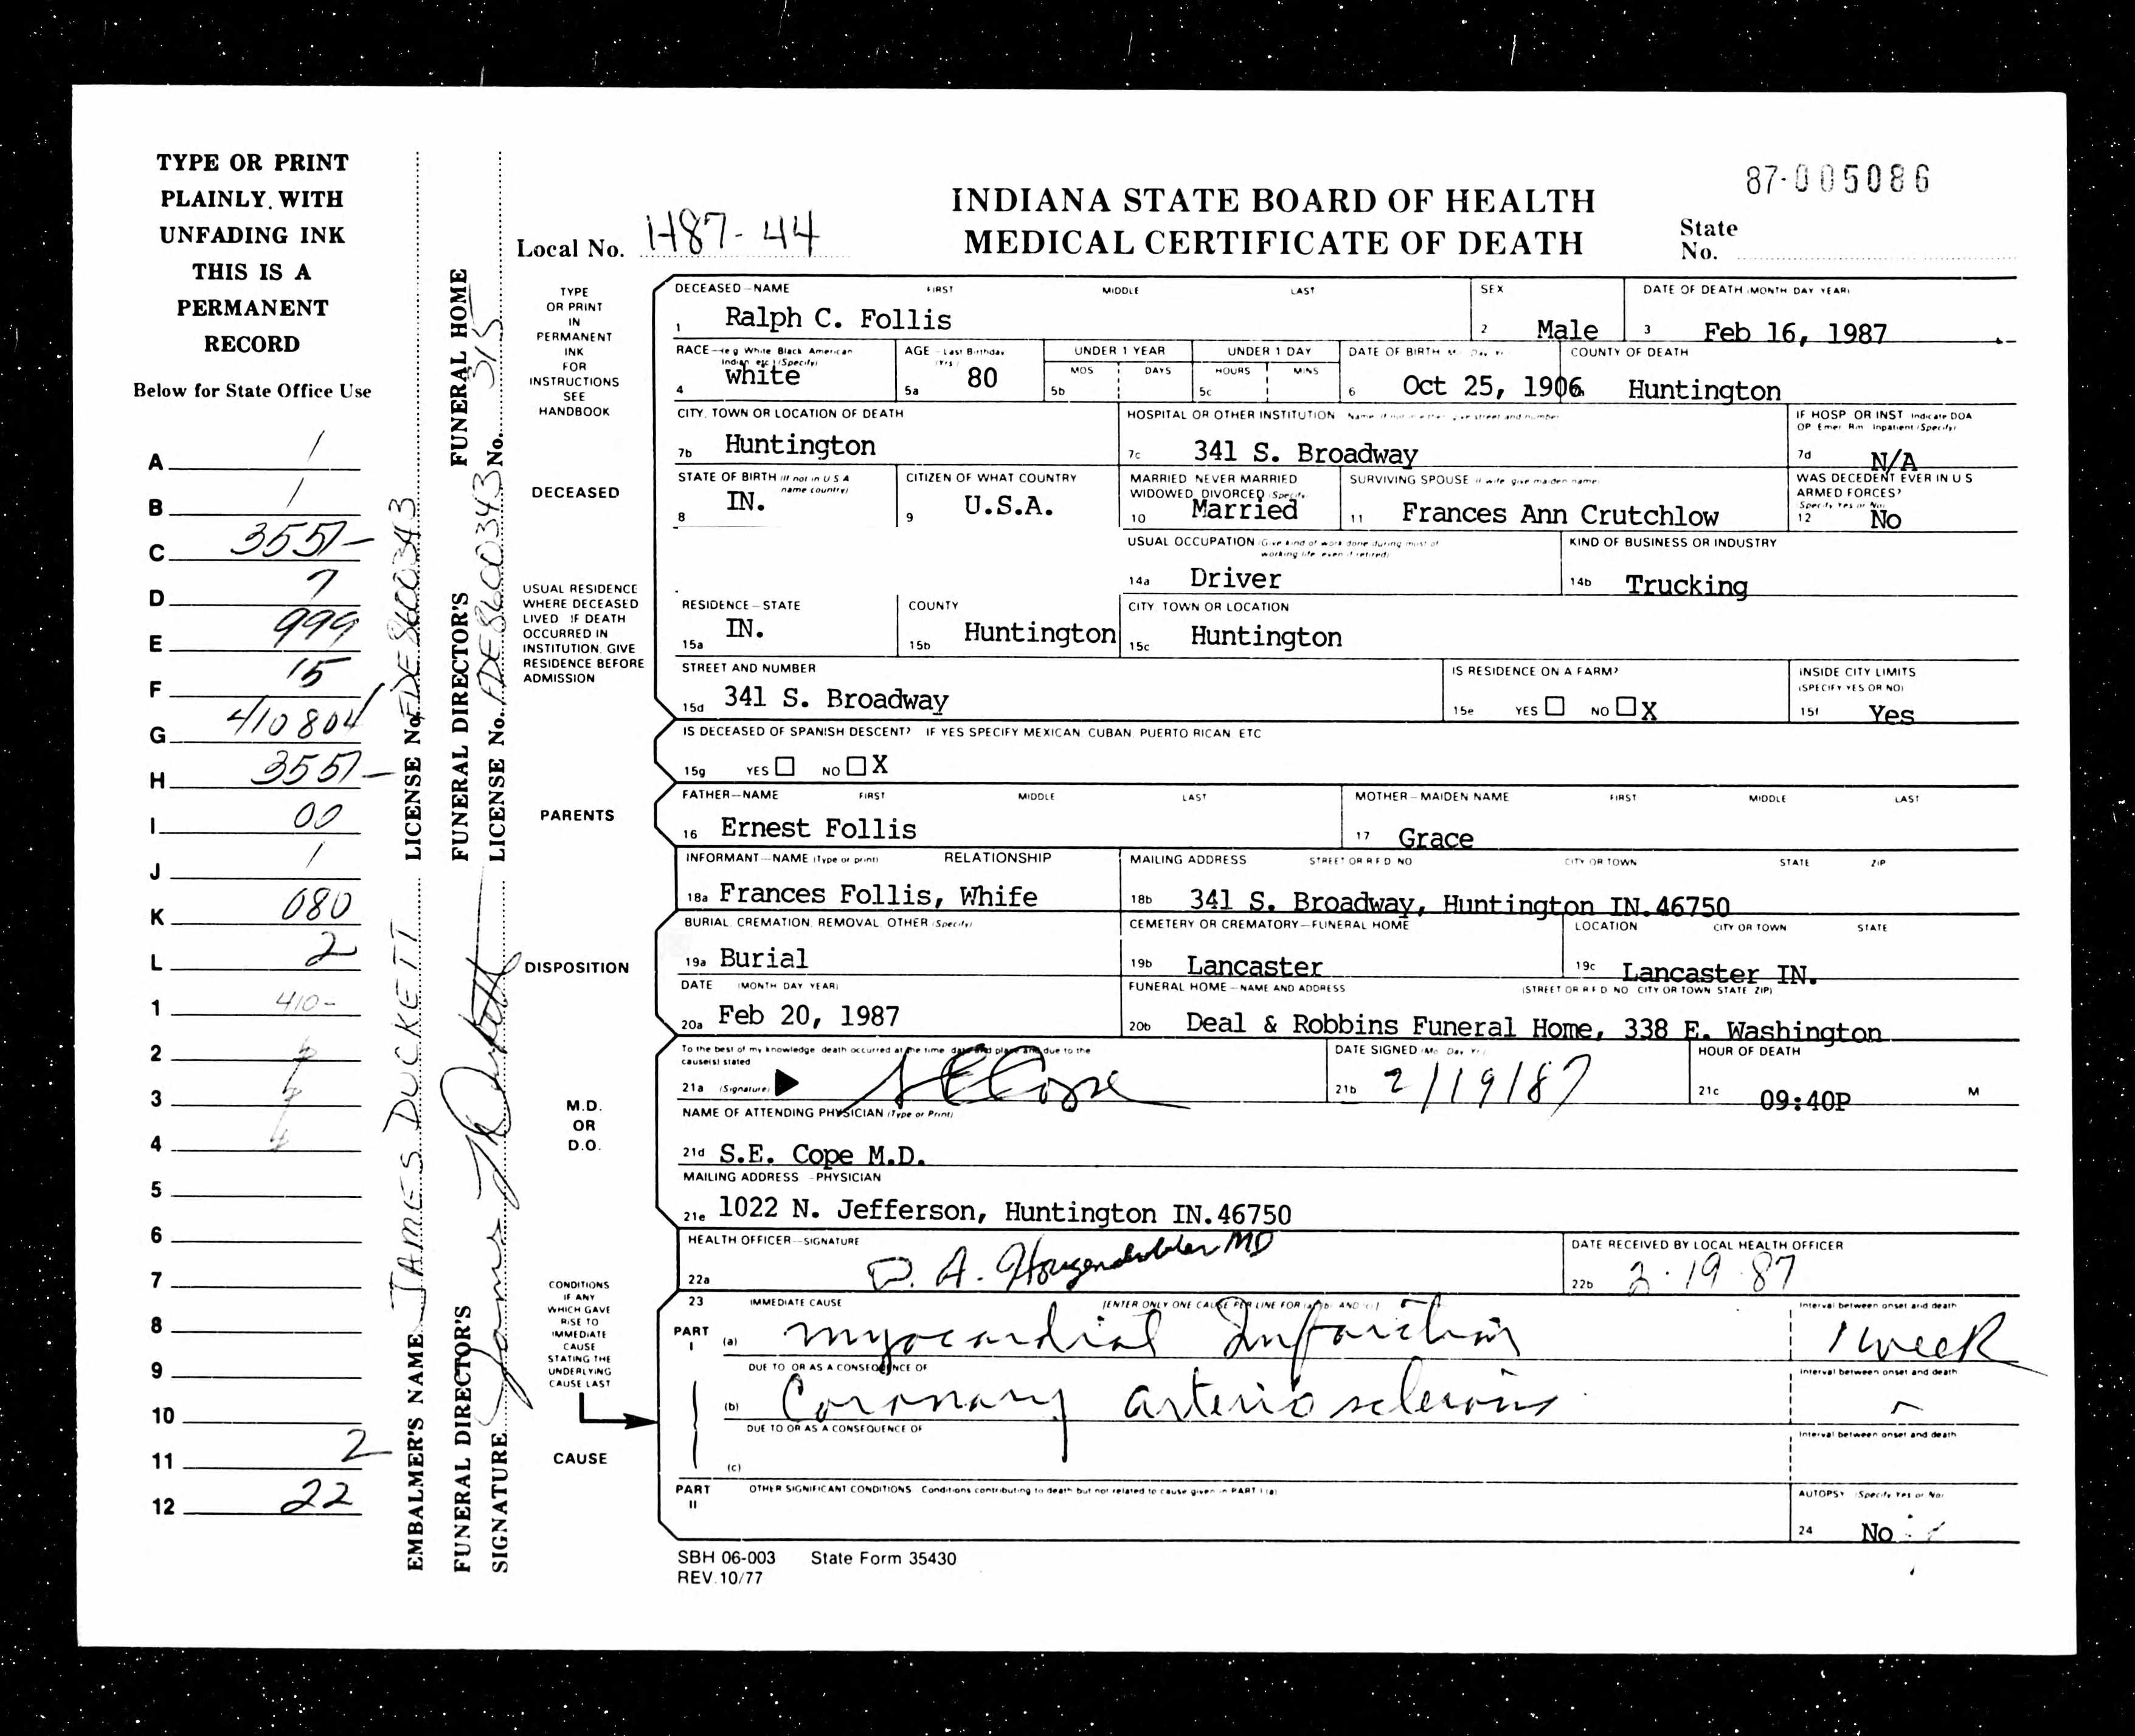 TYPE OR PRINT
PLAINLY. WITH
UNFADING INK
THIS IS A
PERMANENT
RECORD
Below for State Office Use
A 1
B 1
C 3551-
D 7
E 999
F 15
G 410804
H 3551-
I 00
J 1
K 080
L 2
1 410-
2
3
4
5
6
7
8
9
10
11 2
12 22
EMBALMER'S NAME JAMES DUCKETT LICENSE No. FDE8600343
FUNERAL DIRECTOR'S SIGNATURE James Duckett
FUNERAL DIRECTOR'S LICENSE No. FDE8600343
FUNERAL HOME No. 315
INDIANA STATE BOARD OF HEALTH
MEDICAL CERTIFICATE OF DEATH
Local No. H87-44
87-005086
State
No.
TYPE
OR PRINT
IN
PERMANENT
INK
FOR
INSTRUCTIONS
SEE
HANDBOOK
DECEASED—NAME FIRST MIDDLE LAST
1 Ralph C. Follis
SEX
2 Male
DATE OF DEATH (MONTH DAY YEAR)
3 Feb 16, 1987
RACE—(e g White Black American
Indian etc) (Specify)
4 white
AGE—Last Birthday
(Yrs)
5a 80
UNDER 1 YEAR
MOS DAYS
5b
UNDER 1 DAY
HOURS MINS
5c
DATE OF BIRTH
6 Oct 25, 1906
COUNTY OF DEATH
Huntington
DECEASED
CITY, TOWN OR LOCATION OF DEATH
7b Huntington
HOSPITAL OR OTHER INSTITUTION
7c 341 S. Broadway
IF HOSP OR INST Indicate DOA
OP Emer Rm Inpatient (Specify)
7d N/A
STATE OF BIRTH (If not in U S A
name country)
8 IN.
CITIZEN OF WHAT COUNTRY
9 U.S.A.
MARRIED NEVER MARRIED
WIDOWED, DIVORCED (Specify)
10 Married
SURVIVING SPOUSE (if wife give maiden name)
11 Frances Ann Crutchlow
WAS DECEDENT EVER IN U S
ARMED FORCES?
Specify Yes or No
12 No
USUAL OCCUPATION (Give kind of work done during most of
working life even if retired)
14a Driver
KIND OF BUSINESS OR INDUSTRY
14b Trucking
USUAL RESIDENCE
WHERE DECEASED
LIVED IF DEATH
OCCURRED IN
INSTITUTION, GIVE
RESIDENCE BEFORE
ADMISSION
RESIDENCE—STATE
15a IN.
COUNTY
15b Huntington
CITY TOWN OR LOCATION
15c Huntington
STREET AND NUMBER
15d 341 S. Broadway
IS RESIDENCE ON A FARM?
15e YES ☐ NO ☐ X
INSIDE CITY LIMITS
(SPECIFY YES OR NO)
15f Yes
IS DECEASED OF SPANISH DESCENT? IF YES SPECIFY MEXICAN CUBAN PUERTO RICAN ETC
15g YES ☐ NO ☐ X
PARENTS
FATHER—NAME FIRST MIDDLE LAST
16 Ernest Follis
MOTHER—MAIDEN NAME FIRST MIDDLE LAST
17 Grace
INFORMANT—NAME (Type or print) RELATIONSHIP
18a Frances Follis, Whife
MAILING ADDRESS STREET OR R F D NO CITY OR TOWN STATE ZIP
18b 341 S. Broadway, Huntington IN.46750
DISPOSITION
BURIAL, CREMATION, REMOVAL, OTHER (Specify)
19a Burial
CEMETERY OR CREMATORY—FUNERAL HOME
19b Lancaster
LOCATION CITY OR TOWN STATE
19c Lancaster IN.
DATE (MONTH DAY YEAR)
20a Feb 20, 1987
FUNERAL HOME—NAME AND ADDRESS (STREET OR R F D NO CITY OR TOWN STATE ZIP)
20b Deal & Robbins Funeral Home, 338 E. Washington
M.D.
OR
D.O.
To the best of my knowledge death occurred at the time date and place and due to the
cause(s) stated
21a (Signature) S E Cope
DATE SIGNED (Mo Day Yr)
21b 2/19/87
HOUR OF DEATH
21c 09:40P M
NAME OF ATTENDING PHYSICIAN (Type or Print)
21d S.E. Cope M.D.
MAILING ADDRESS—PHYSICIAN
21e 1022 N. Jefferson, Huntington IN.46750
HEALTH OFFICER—SIGNATURE
22a MD
DATE RECEIVED BY LOCAL HEALTH OFFICER
22b 2-19-87
CONDITIONS
IF ANY
WHICH GAVE
RISE TO
IMMEDIATE
CAUSE
STATING THE
UNDERLYING
CAUSE LAST
CAUSE
23 IMMEDIATE CAUSE [ENTER ONLY ONE CAUSE PER LINE FOR (a) (b) AND (c)]
PART
I
(a) myocardial Infarction
Interval between onset and death
1 week
DUE TO OR AS A CONSEQUENCE OF
(b) Coronary arteriosclerosis
Interval between onset and death
DUE TO OR AS A CONSEQUENCE OF
(c)
Interval between onset and death
PART
II
OTHER SIGNIFICANT CONDITIONS Conditions contributing to death but not related to cause given in PART I (a)
AUTOPSY (Specify Yes or No)
24 No
SBH 06-003 State Form 35430
REV.10/77